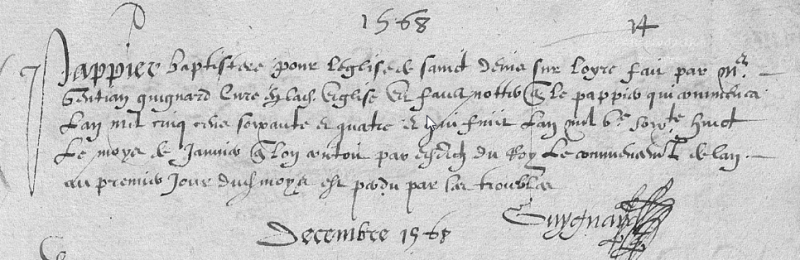 1568 14
Pappier baptistere pour leglise de sainct denis sur loyre faict par mr
Gentian quignard cure de lad. eglise Et fault notter q le pappier qui commenca
Lan mil cinq cens soixante et quatre et qui finit Lan mil vc soixte huict
Le moys de Janvier q lon contoit par esdict du Roy Le commencemt de lan
au premier Jour dud moys est perdu par les troubles
Guygnard
Decembre 1568